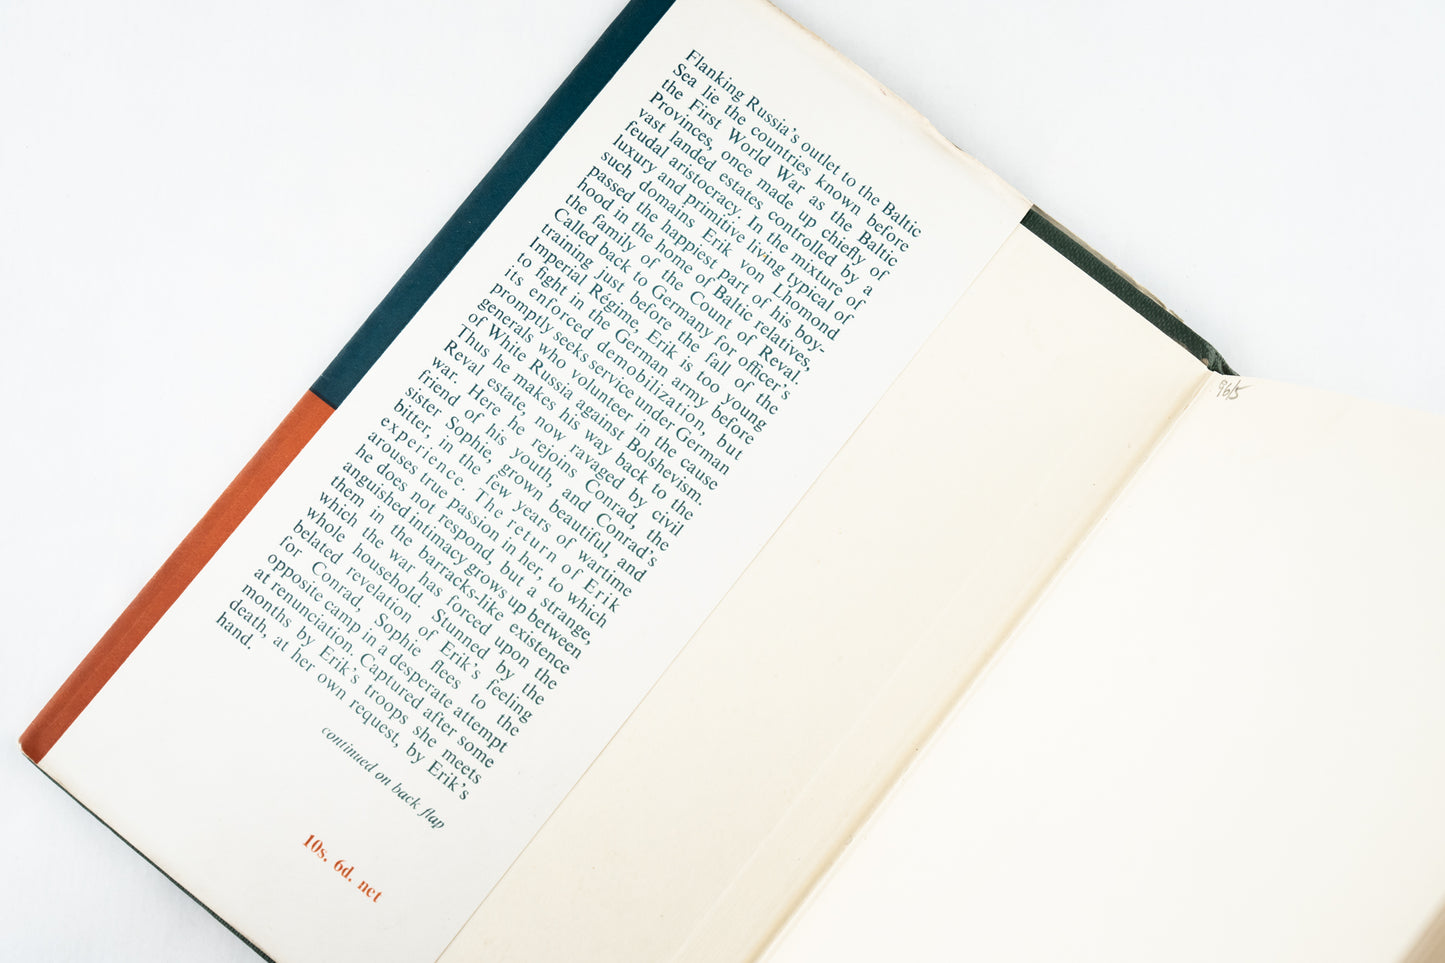 Flanking Russia's outlet to the Baltic
Sea lie the countries known before
the First World War as the Baltic
Provinces, once made up chiefly of
vast landed estates controlled by a
feudal aristocracy. In the mixture of
luxury and primitive living typical of
such domains Erik von Lhomond
passed the happiest part of his boy-
hood in the home of Baltic relatives,
the family of the Count of Reval.
Called back to Germany for officer's
training just before the fall of the
Imperial Régime, Erik is too young
to fight in the German army before
its enforced demobilization, but
promptly seeks service under German
generals who volunteer in the cause
of White Russia against Bolshevism.
Thus he makes his way back to the
Reval estate, now ravaged by civil
war. Here he rejoins Conrad, the
friend of his youth, and Conrad's
sister Sophie, grown beautiful, and
bitter, in the few years of wartime
experience. The return of Erik
arouses true passion in her, to which
he does not respond, but a strange,
anguished intimacy grows up between
them in the barracks-like existence
which the war has forced upon the
whole household. Stunned by the
belated revelation of Erik's feeling
for Conrad, Sophie flees to the
opposite camp in a desperate attempt
at renunciation. Captured after some
months by Erik's troops she meets
death, at her own request, by Erik's
hand.
continued on back flap
10s. 6d. net